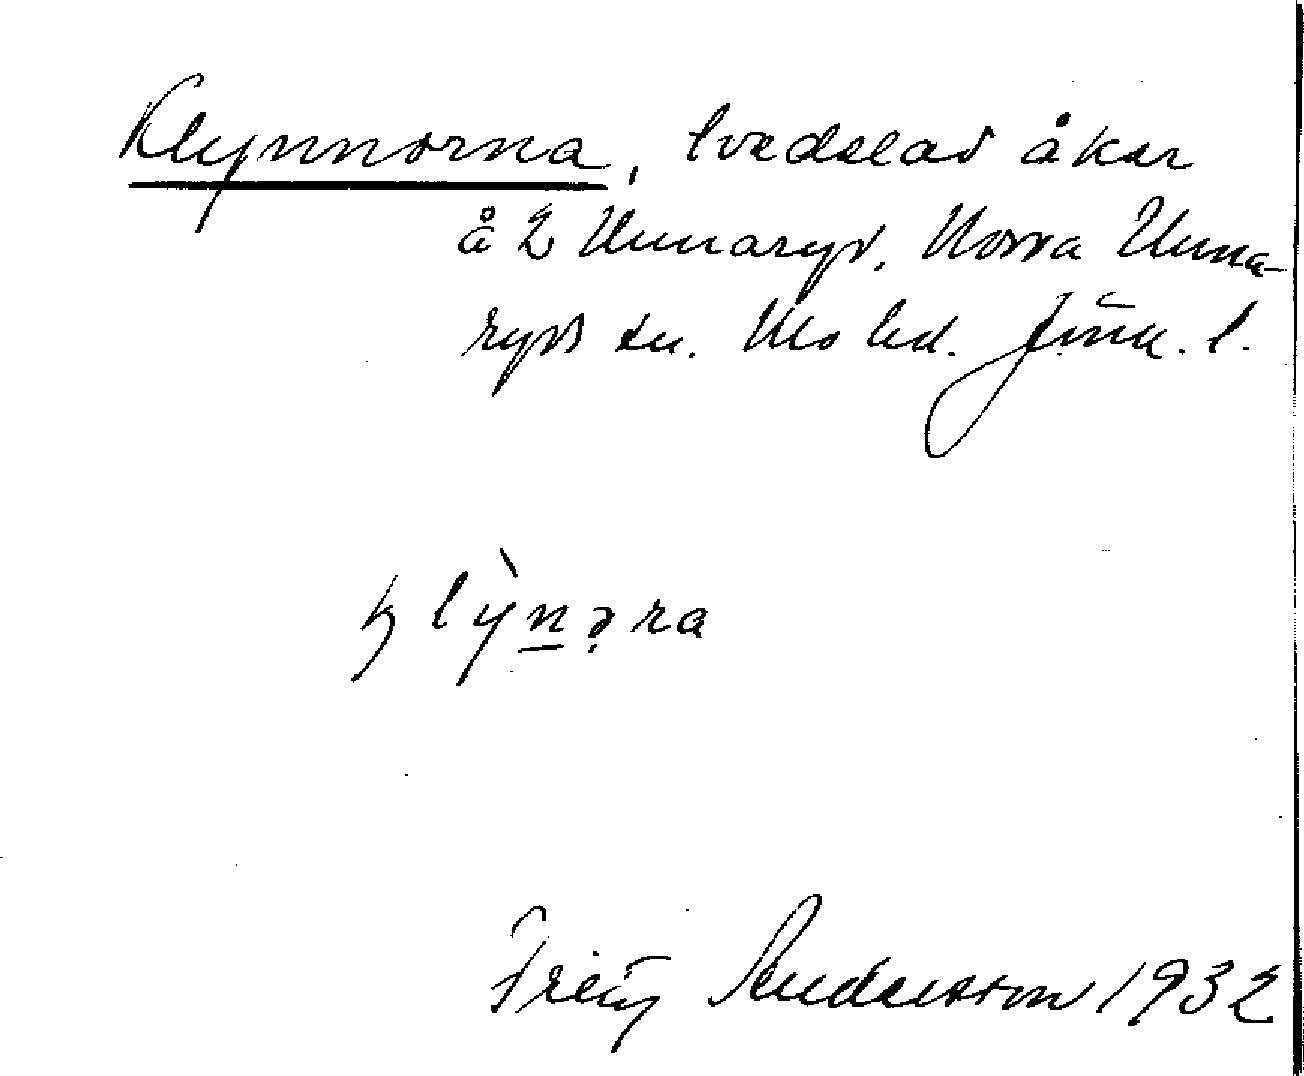 Klynnorna, tvedelad åker
å 2 Unnaryd, Norra Unna-
ryds sn. Mo hd. Jönk. l.
klỳnəra
Fritz Andersson 1932